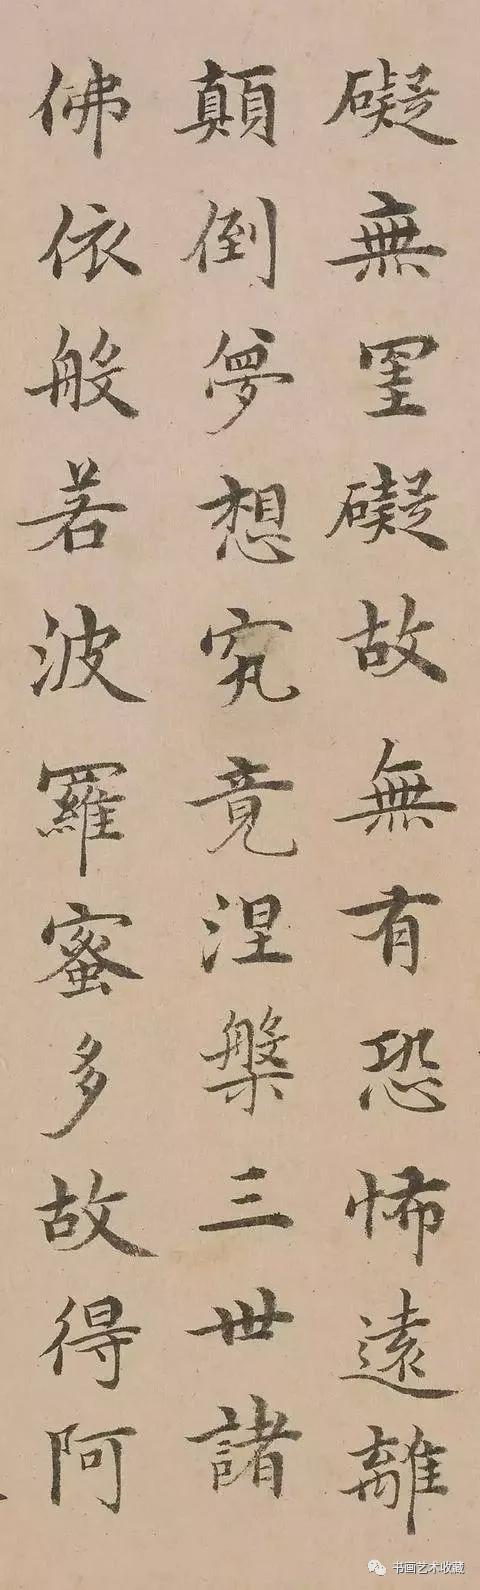 礙無罣礙故無有恐怖遠離
顛倒夢想究竟涅槃三世諸
佛依般若波羅蜜多故得阿
书画艺术收藏